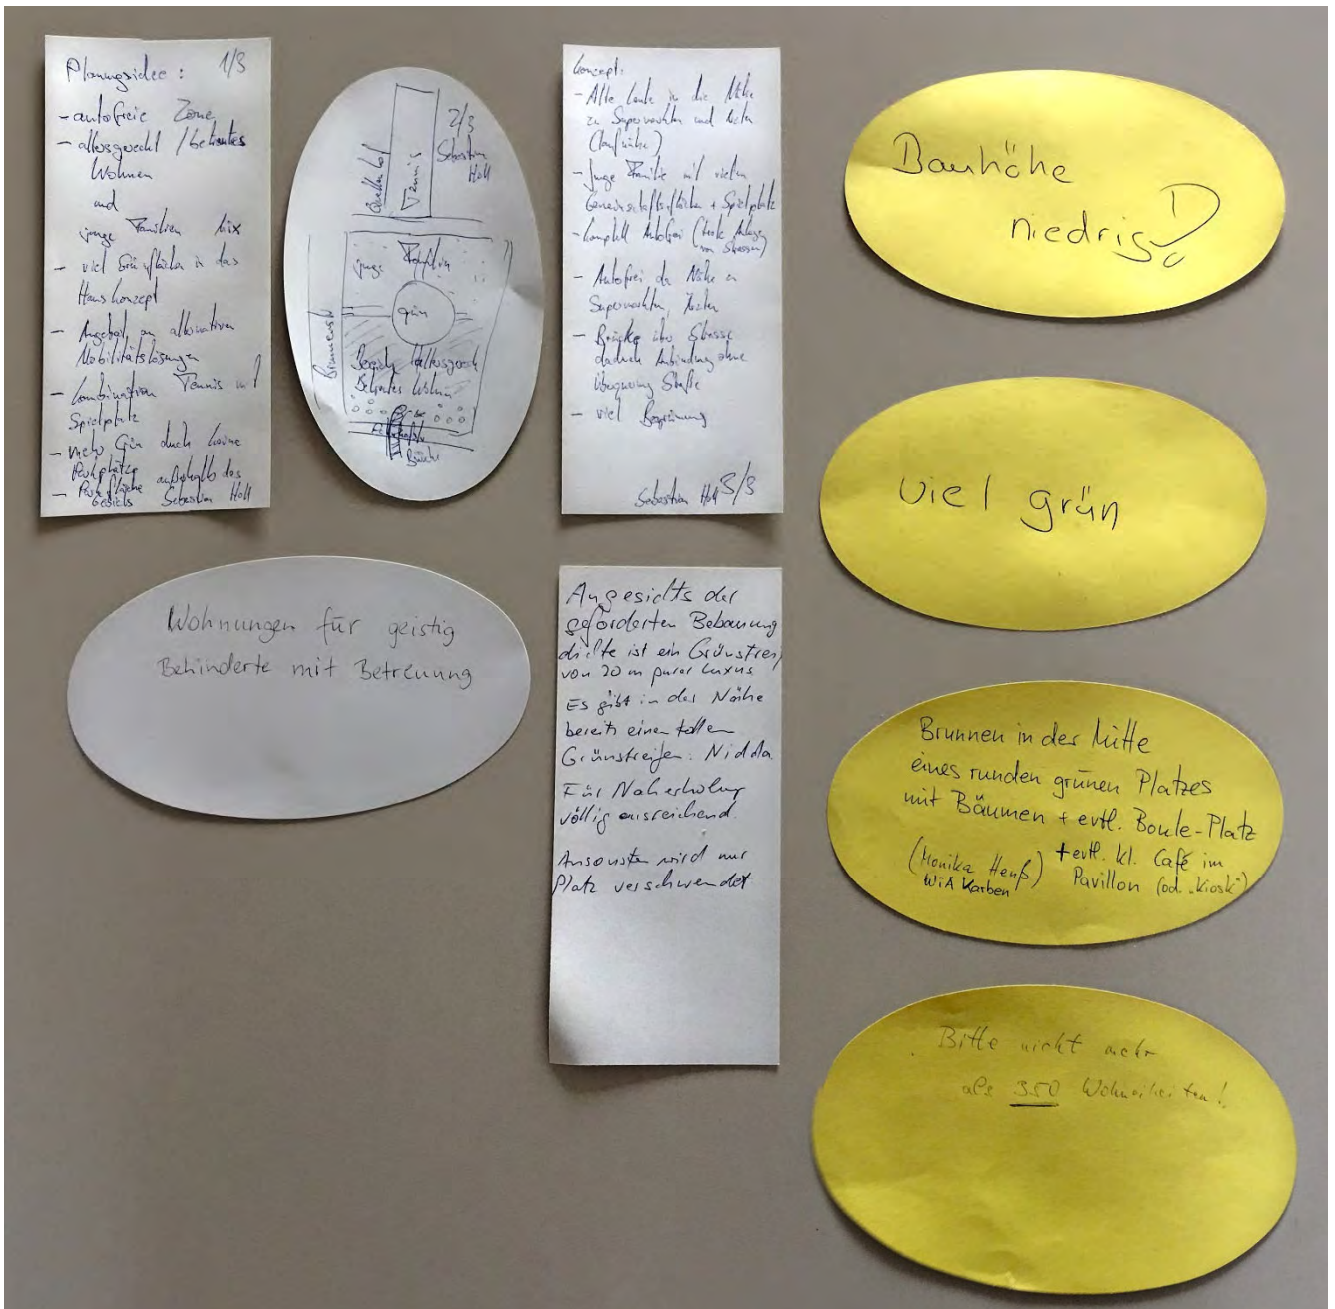 Planungsidee : 1/3
- autofreie Zone
- altersgerecht / betreutes
Wohnen
und
junge Familien Mix
- viel Grünflächen in das
Hauskonzept
- Angebot an alternativen
Mobilitätslösungen
- Kombination Tennis und
Spielplatz
- mehr Grün durch keine
Parkplätze
- Parkfläche außerhalb des
Gebiets Sebastian Holl
2/3
Sebastian
Holl
Quellenhof
Tennis
junge Familien
grün
Brunnenstr
Bereich Altersgerecht
Betreutes Wohnen
Brücke
Konzept:
- Alte Leute in die Nähe
zu Supermärkten und Ärzten
(Laufnähe)
- junge Familie mit vielen
Gemeinschaftsflächen + Spielplatz
- Komplett Autofrei
- Autofrei da Nähe zu
Supermärkten, Ärzten
- Brücke über Strasse
dadurch Anbindung ohne
Überquerung Straße
- viel Begrünung
Sebastian Holl 3/3
Bauhöhe
niedrig!
viel grün
Wohnungen für geistig
Behinderte mit Betreuung
Angesichts der
geforderten Bebauung
dichte ist ein Grünstreif
von 20 m purer Luxus
Es gibt in der Nähe
bereits einen tollen
Grünstreifen: Nidda
Für Naherholung
völlig ausreichend.
Ansonsten wird nur
Platz verschwendet
Brunnen in der Mitte
eines runden grünen Platzes
mit Bäumen + evtl. Boule-Platz
+ evtl. kl. Café im
Pavillon (od. "Kiosk")
(Monika Henß)
WiA Karben
Bitte nicht mehr
als 350 Wohneinheiten!